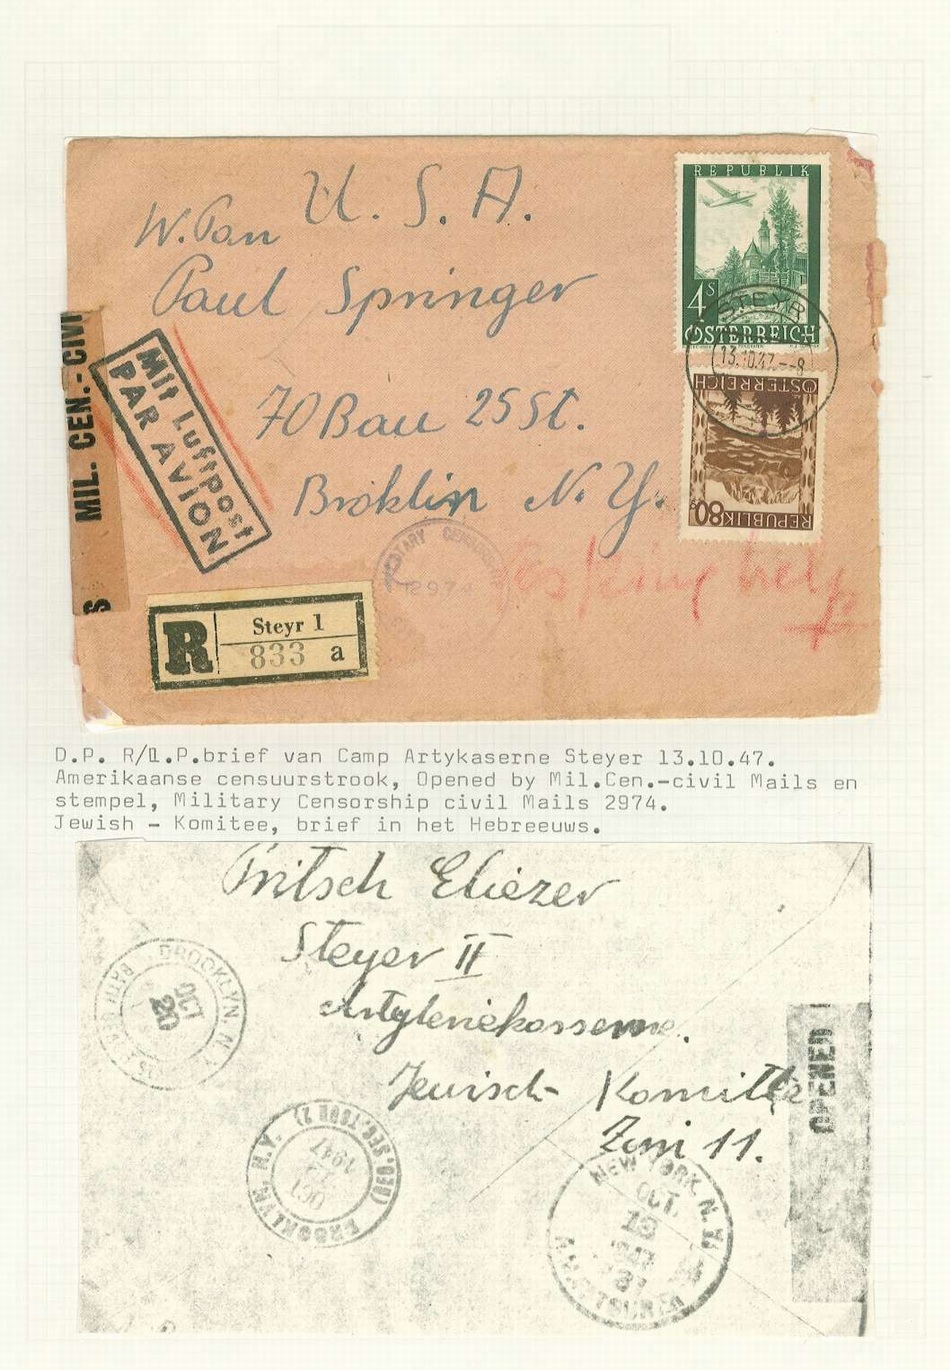 U. S. A.
W. Pan
Paul Springer
70 Bau 25 St.
Bröklin N. Y.
REPUBLIK
4S
ÖSTERREICH
STEYR
13.10.47.--8
ÖSTERREICH
80
REPUBLIK
MIL. CEN. - CIVI
S
Mit Luftpost
PAR AVION
MILITARY CENSORSHIP
2974
help
R
Steyr 1
833 a
D.P. R/L.P.brief van Camp Artykaserne Steyer 13.10.47.
Amerikaanse censuurstrook, Opened by Mil.Cen.-civil Mails en
stempel, Military Censorship civil Mails 2974.
Jewish - Komitee, brief in het Hebreeuws.
Pritsch Eliezer
Steyer II
Artyleriekasserne.
Jewisch- Komitte
Zim 11.
OPENED
BROOKLYN, N.Y.
OCT
20
BROOKLYN, N.Y.
OCT
1947
NEW YORK, N.Y.
OCT.